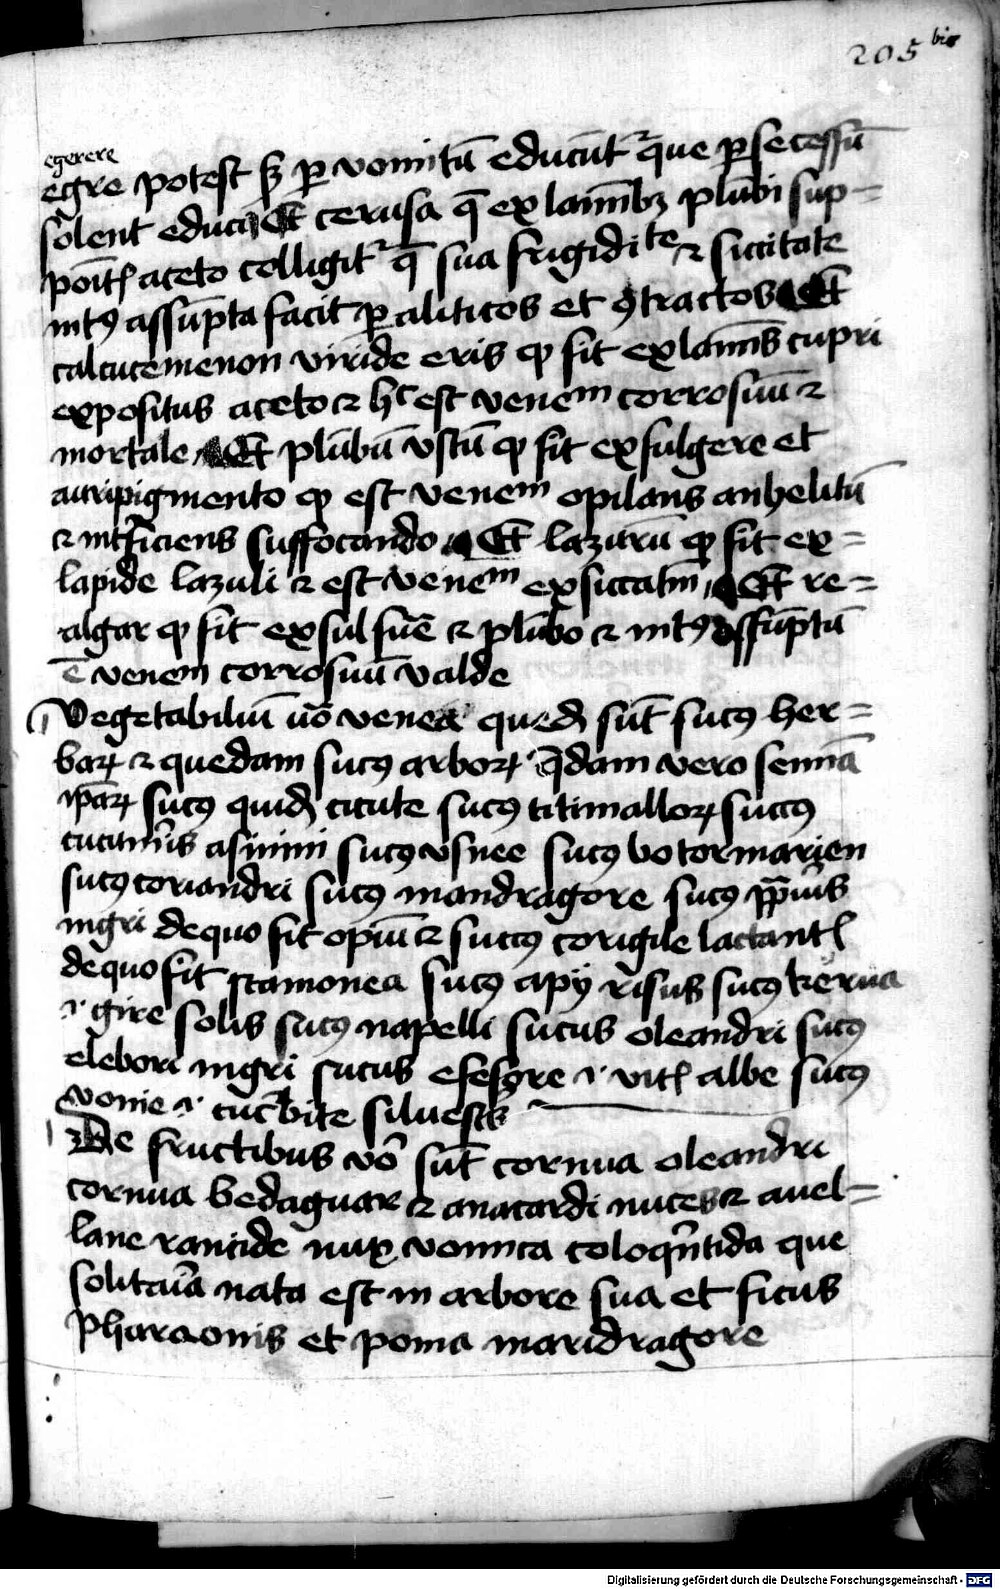 205 bis
egerere
egre potest sz p vomitū educūt᷑ que p secessū
solent educi Et cerusa q̄ ex laminibꝫ plūbi sup=
aceto colligit᷑ q̄ sua frigidite ⁊ siccitate
intꝰ assūpta facit paliticos et ꝯtractos Et
calcucemenon viride eris ꝙ fit ex laminis cupri
expositus aceto ⁊ hc est venenm corrosiuū ⁊
mortale Et plūbū vstū ꝙ fit ex fulgere et
auripigmento ꝙ est venenm opilans anhelitū
⁊ intficiens suffocando Et lazurū ꝙ fit ex=
lapide lazuli ⁊ est venenm exsiccatm Et re=
algar ꝙ fit ex sulfue ⁊ plūbo ⁊ intꝰ assūptū
ē venenm corrosiuū valde
Vegetabiliū uo venea queda sūt sucꝰ her=
barꝝ ⁊ quedam sucꝰ arborꝝ q̄dam vero semīa
iparꝝ sucꝰ quid cicute sucꝰ titimallorꝝ succꝰ
cucumis asinini sucꝰ vsnee sucꝰ botormarien
sucꝰ coriandri sucꝰ mandragore sucꝰ ppauis
nigri de quo fit opiū ⁊ succꝰ corigile lactant
de quo fit scamonea sucꝰ apij risus sucꝰ kerua
.i. gire solis sucꝰ napelli sucus oleandri sucꝰ
elebori nigri sucus esesere .i. vit albe sucꝰ
vonie .i. cucbite siluestis
De fructibus vo sūt cornua oleandri
cornua bedaguar ⁊ anacardi nuces ⁊ auel=
lane rancide nux vomica coloqntida que
solitaria nata est in arbore sua et ficus
pharaonis et poma mandragore
Digitalisierung gefördert durch die Deutsche Forschungsgemeinschaft - DFG